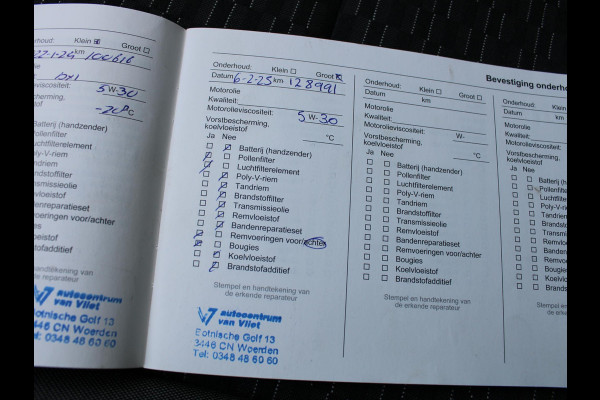 Onderhoud: Klein Groot
22-1-24 km 100616
scositeit: 5 W-30
scherming,
-20 °C
Batterij (handzender)
Pollenfilter
Luchtfilterelement
Poly-V-riem
Tandriem
Brandstoffilter
Transmissieolie
Remvloeistof
Bandenreparatieset
Remvoeringen voor/achter
Bougies
Koelvloeistof
Brandstofadditief
Stempel en handtekening van
de erkende reparateur
V7 autocentrum
van Vliet
Botnische Golf 13
3446 CN Woerden
Tel: 0348 48 60 60
Onderhoud: Klein Groot
Datum 6-2-25 km 128991
Motorolie
Kwaliteit:
Motorolieviscositeit: 5 W-30
Vorstbescherming,
koelvloeistof °C
Ja Nee
Batterij (handzender)
Pollenfilter
Luchtfilterelement
Poly-V-riem
Tandriem
Brandstoffilter
Transmissieolie
Remvloeistof
Bandenreparatieset
Remvoeringen voor/achter
Bougies
Koelvloeistof
Brandstofadditief
Stempel en handtekening van
de erkende reparateur
V7 autocentrum
van Vliet
Botnische Golf 13
3446 CN Woerden
Tel: 0348 48 60 60
Bevestiging onderho
Onderhoud: Klein Groot
Datum km
Motorolie
Kwaliteit:
Motorolieviscositeit: W-
Vorstbescherming,
koelvloeistof °C
Ja Nee
Batterij (handzender)
Pollenfilter
Luchtfilterelement
Poly-V-riem
Tandriem
Brandstoffilter
Transmissieolie
Remvloeistof
Bandenreparatieset
Remvoeringen voor/achter
Bougies
Koelvloeistof
Brandstofadditief
Stempel en handtekening van
de erkende reparateur
Onderhoud: Klein
Datum km
Motorolie
Kwaliteit:
Motorolieviscositeit:
Vorstbescherming,
koelvloeistof
Ja Nee
Batterij (
Pollenfilter
Luchtfilter
Poly-V-rie
Tandriem
Brandstof
Transmiss
Remvloei
Bandenre
Remvoeri
Bougies
Koelvloei
Brandsto
Stempel en
de er